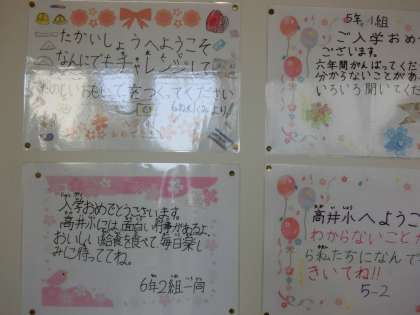 たかいしょうへようこそ
なんにでもチャレンジして
たのしいおもいでをつくってください
入学おめでとうございます。
高井小には面白い行事があるよ。
おいしい給食を食べて、毎日楽し
みに待っててね。
6年2組一同
5年1組
ご入学おめ
ございます。
六年間がんばってくだ
分からないことがあ
いろいろ聞いてくだ
高井小へようこ
わからないこと
ら私たちになんで
きいてね!!
5-2